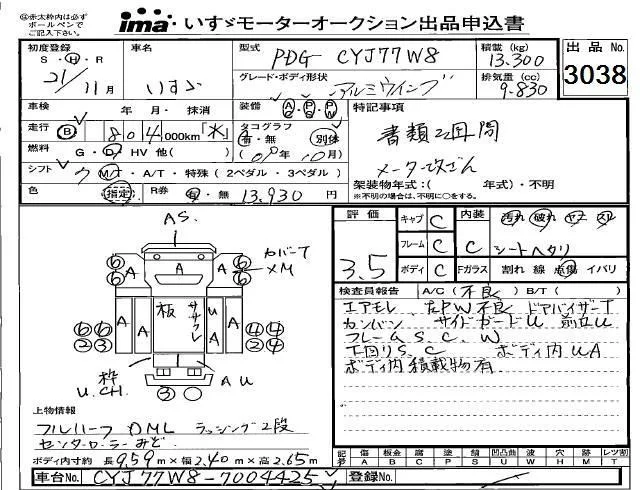 ◎赤太枠内は必ず
ボールペンで
ご記入下さい。
ima・いすゞモーターオークション出品申込書
初度登録 車名 型式 PDG CYJ77W8 積載 (kg) 13.300
S・H・R 21/11月 いすゞ グレード・ボディ形状 アルミウイング 排気量 (cc) 9.830
出品No 3038
車検 年・月・抹消 装備 AC・PS・PW 特記事項
走行 B 804,000km「水」 タコグラフ 有・無 別体 書類2週間
燃料 G・D・HV 他( ) (09年10月) メーター改ざん
シフト 7 MT・A/T・特殊(2ペダル・3ペダル) 架装物年式:( 年式)・不明
色 指定 R券 有・無 13,930円 ※不明の場合は、不明に○をする。
評価 3.5
キャブ C 内装 汚れ 破れ ヤケ スレ
フレーム C C シートヘタリ
ボディ C Fガラス 割れ 線 点傷 イバリ
検査員報告 A/C(不良) B/T( )
エアモレ 左PW不良 ドアバイザーT
カンバン サイドガードU 前口U
フレームS.C.W
下回りS.C ボディ内UA
ボディ内積載物有
AS.
カバーT
XM
A
板
ササクレ
U
枠
U.CH.
AU
⑥ ⑥ ⑥ ⑥
⑥ ⑥ ④ ④
② ③ ② ④
③
上物情報
フルハーフ DML ラッシング2段
センターローラーみぞ
ボディ内寸約 長9.59m×幅2.40m×高2.65m
記号 傷A 板金B 腐C 補P サS 凹凸曲U 波W 穴H 跡M レツ割T
車台No. CYJ77W8-7004425 登録No.